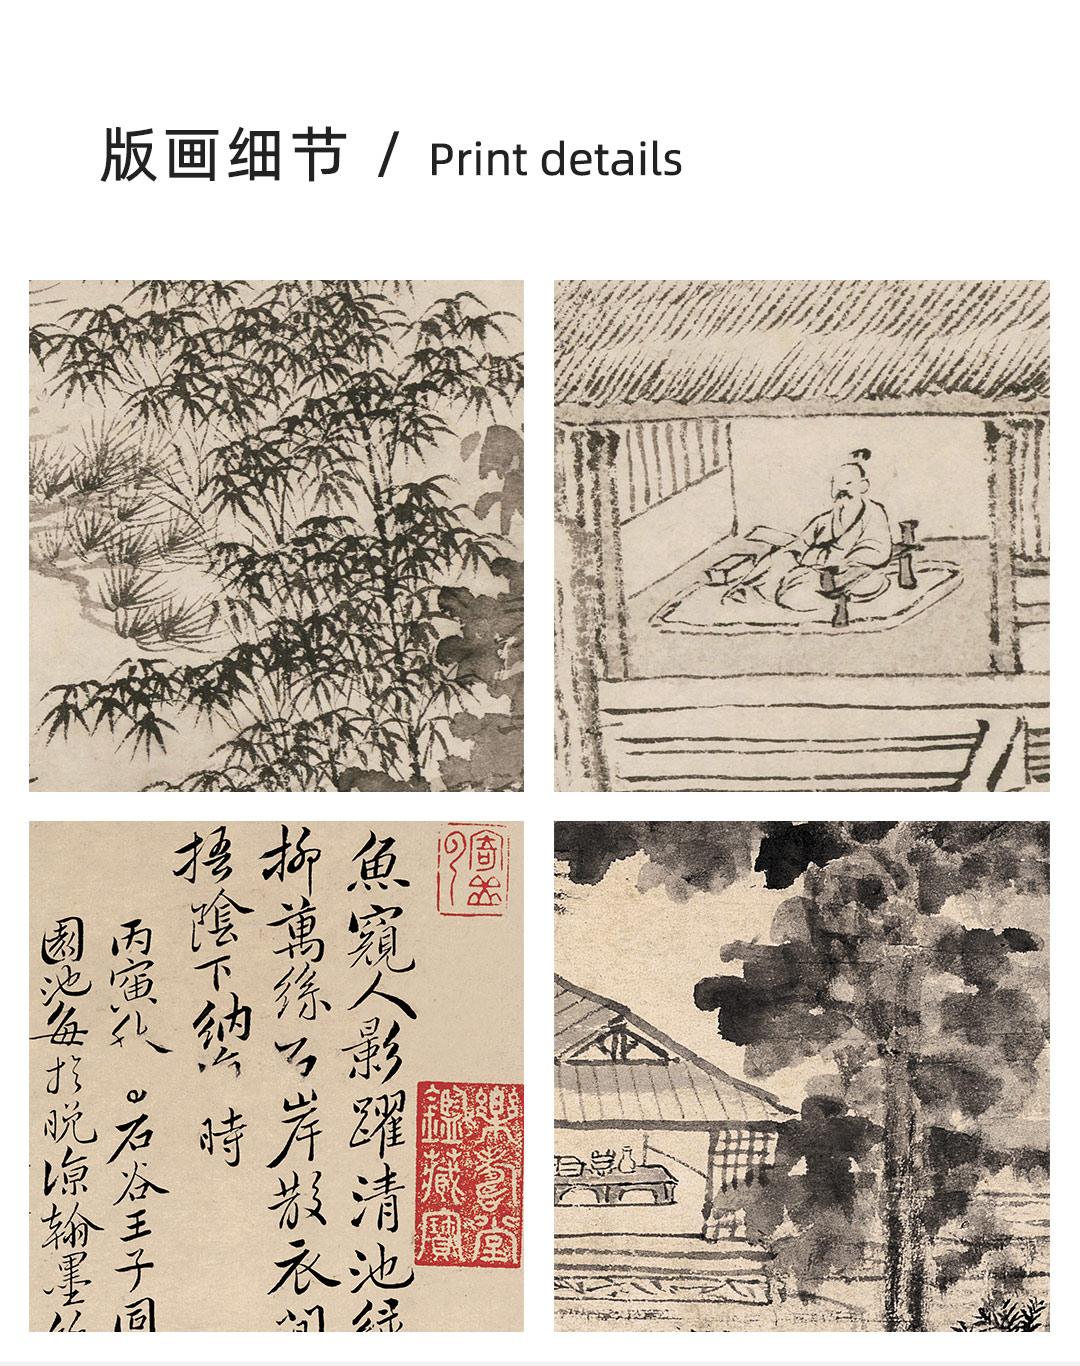 版画细节 / Print details
魚窺人影躍清池綠
柳萬絲石岸散衣閒
梧陰下納 時
丙寅 石谷王子同
園池每於晚涼翰墨
樂壽堂鑑藏寶